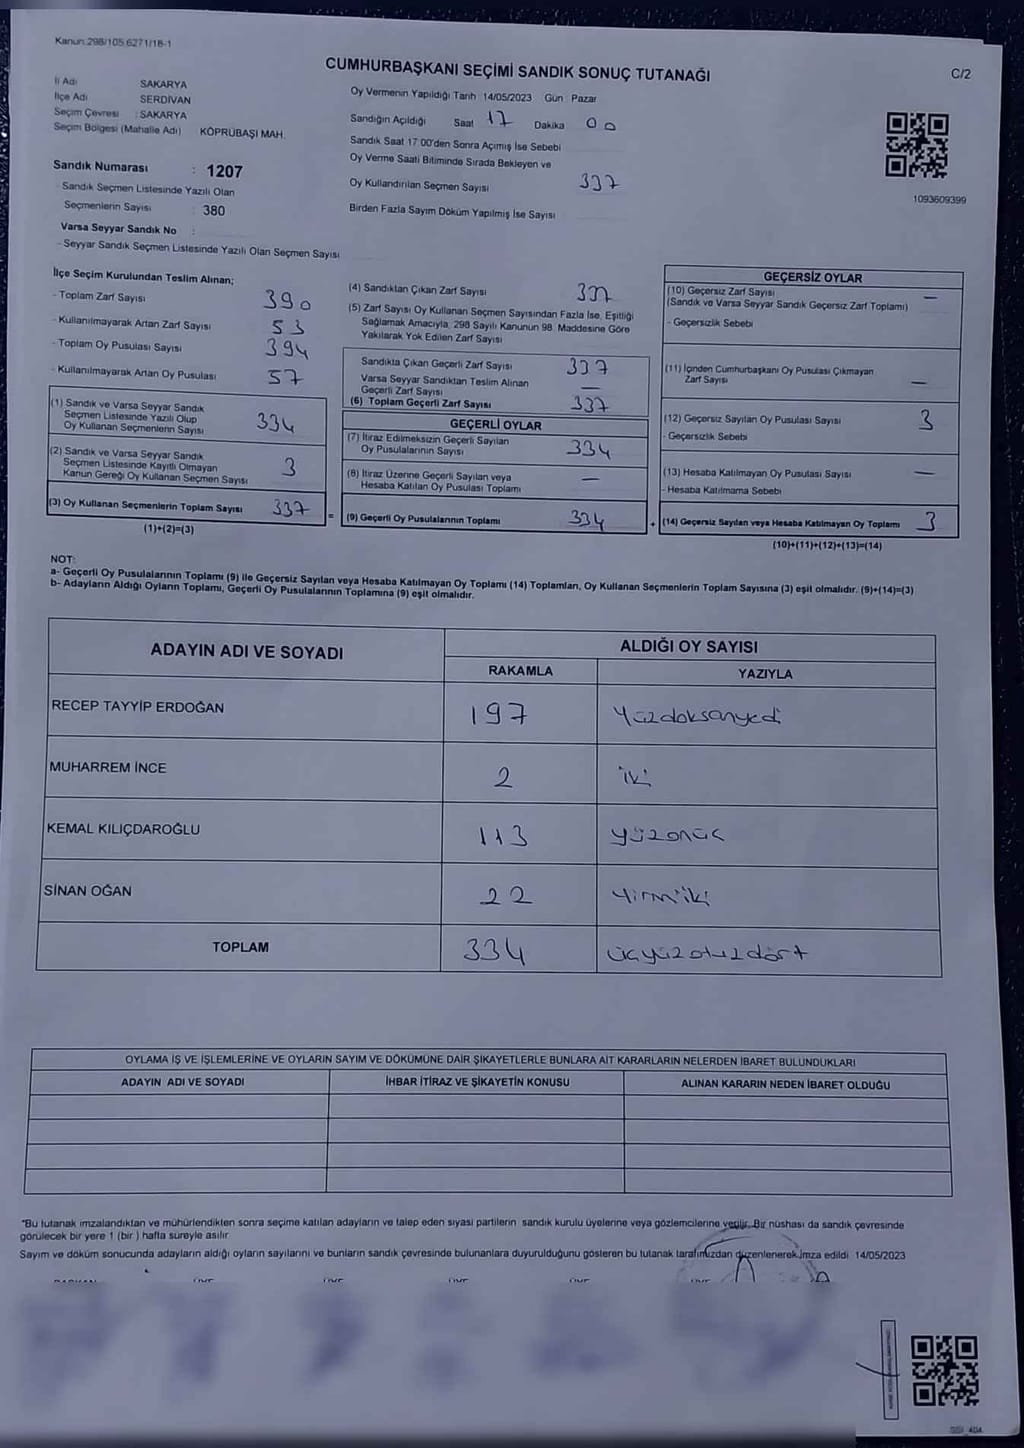 Kanun:298/105,6271/18-1
CUMHURBAŞKANI SEÇİMİ SANDIK SONUÇ TUTANAĞI
C/2
İl Adı SAKARYA
İlçe Adı SERDİVAN
Seçim Çevresi : SAKARYA
Seçim Bölgesi (Mahalle Adı) KÖPRÜBAŞI MAH.
Oy Vermenin Yapıldığı Tarih 14/05/2023 Gün : Pazar
Sandığın Açıldığı Saat 17 Dakika 00
Sandık Saat 17:00'den Sonra Açımış İse Sebebi
Oy Verme Saati Bitiminde Sırada Bekleyen ve
Oy Kullandırılan Seçmen Sayısı 337
Birden Fazla Sayım Döküm Yapılmış İse Sayısı
1093609399
Sandık Numarası : 1207
- Sandık Seçmen Listesinde Yazılı Olan
Seçmenlerin Sayısı 380
Varsa Seyyar Sandık No :
- Seyyar Sandık Seçmen Listesinde Yazılı Olan Seçmen Sayısı
İlçe Seçim Kurulundan Teslim Alınan;
- Toplam Zarf Sayısı 390
- Kullanılmayarak Artan Zarf Sayısı 53
- Toplam Oy Pusulası Sayısı 394
- Kullanılmayarak Artan Oy Pusulası 57
(1) Sandık ve Varsa Seyyar Sandık
Seçmen Listesinde Yazılı Olup
Oy Kullanan Seçmenlerin Sayısı 334
(2) Sandık ve Varsa Seyyar Sandık
Seçmen Listesinde Kayıtlı Olmayan
Kanun Gereği Oy Kullanan Seçmen Sayısı 3
(3) Oy Kullanan Seçmenlerin Toplam Sayısı 337
(1)+(2)=(3)
(4) Sandıktan Çıkan Zarf Sayısı 337
(5) Zarf Sayısı Oy Kullanan Seçmen Sayısından Fazla İse, Eşitliği
Sağlamak Amacıyla, 298 Sayılı Kanunun 98. Maddesine Göre
Yakılarak Yok Edilen Zarf Sayısı
Sandıkta Çıkan Geçerli Zarf Sayısı 337
Varsa Seyyar Sandıktan Teslim Alınan
Geçerli Zarf Sayısı —
(6) Toplam Geçerli Zarf Sayısı 337
GEÇERLİ OYLAR
(7) İtiraz Edilmeksizin Geçerli Sayılan
Oy Pusulalarının Sayısı 334
(8) İtiraz Üzerine Geçerli Sayılan veya
Hesaba Katılan Oy Pusulası Toplamı —
= (9) Geçerli Oy Pusulalarının Toplamı 334
GEÇERSİZ OYLAR
(10) Geçersiz Zarf Sayısı —
(Sandık ve Varsa Seyyar Sandık Geçersiz Zarf Toplamı)
- Geçersizlik Sebebi
(11) İçinden Cumhurbaşkanı Oy Pusulası Çıkmayan
Zarf Sayısı —
(12) Geçersiz Sayılan Oy Pusulası Sayısı 3
- Geçersizlik Sebebi
(13) Hesaba Katılmayan Oy Pusulası Sayısı —
- Hesaba Katılmama Sebebi
+ (14) Geçersiz Sayılan veya Hesaba Katılmayan Oy Toplamı 3
(10)+(11)+(12)+(13)=(14)
NOT:
a- Geçerli Oy Pusulalarının Toplamı (9) ile Geçersiz Sayılan veya Hesaba Katılmayan Oy Toplamı (14) Toplamları, Oy Kullanan Seçmenlerin Toplam Sayısına (3) eşit olmalıdır. (9)+(14)=(3)
b- Adayların Aldığı Oyların Toplamı, Geçerli Oy Pusulalarının Toplamına (9) eşit olmalıdır.
ADAYIN ADI VE SOYADI ALDIĞI OY SAYISI
RAKAMLA YAZIYLA
RECEP TAYYİP ERDOĞAN 197 Yüzdoksanyedi
MUHARREM İNCE 2 iki
KEMAL KILIÇDAROĞLU 113 yüzonüç
SİNAN OĞAN 22 Yirmiiki
TOPLAM 334 üçyüzotuzdört
OYLAMA İŞ VE İŞLEMLERİNE VE OYLARIN SAYIM VE DÖKÜMÜNE DAİR ŞİKAYETLERLE BUNLARA AİT KARARLARIN NELERDEN İBARET BULUNDUKLARI
ADAYIN ADI VE SOYADI İHBAR İTİRAZ VE ŞİKAYETİN KONUSU ALINAN KARARIN NEDEN İBARET OLDUĞU
"Bu tutanak imzalandıktan ve mühürlendikten sonra seçime katılan adayların ve talep eden siyasi partilerin sandık kurulu üyelerine veya gözlemcilerine verilir. Bir nüshası da sandık çevresinde
görülecek bir yere 1 (bir ) hafta süreyle asılır
Sayım ve döküm sonucunda adayların aldığı oyların sayılarını ve bunların sandık çevresinde bulunanlara duyurulduğunu gösteren bu tutanak tarafımızdan düzenlenerek imza edildi 14/05/2023